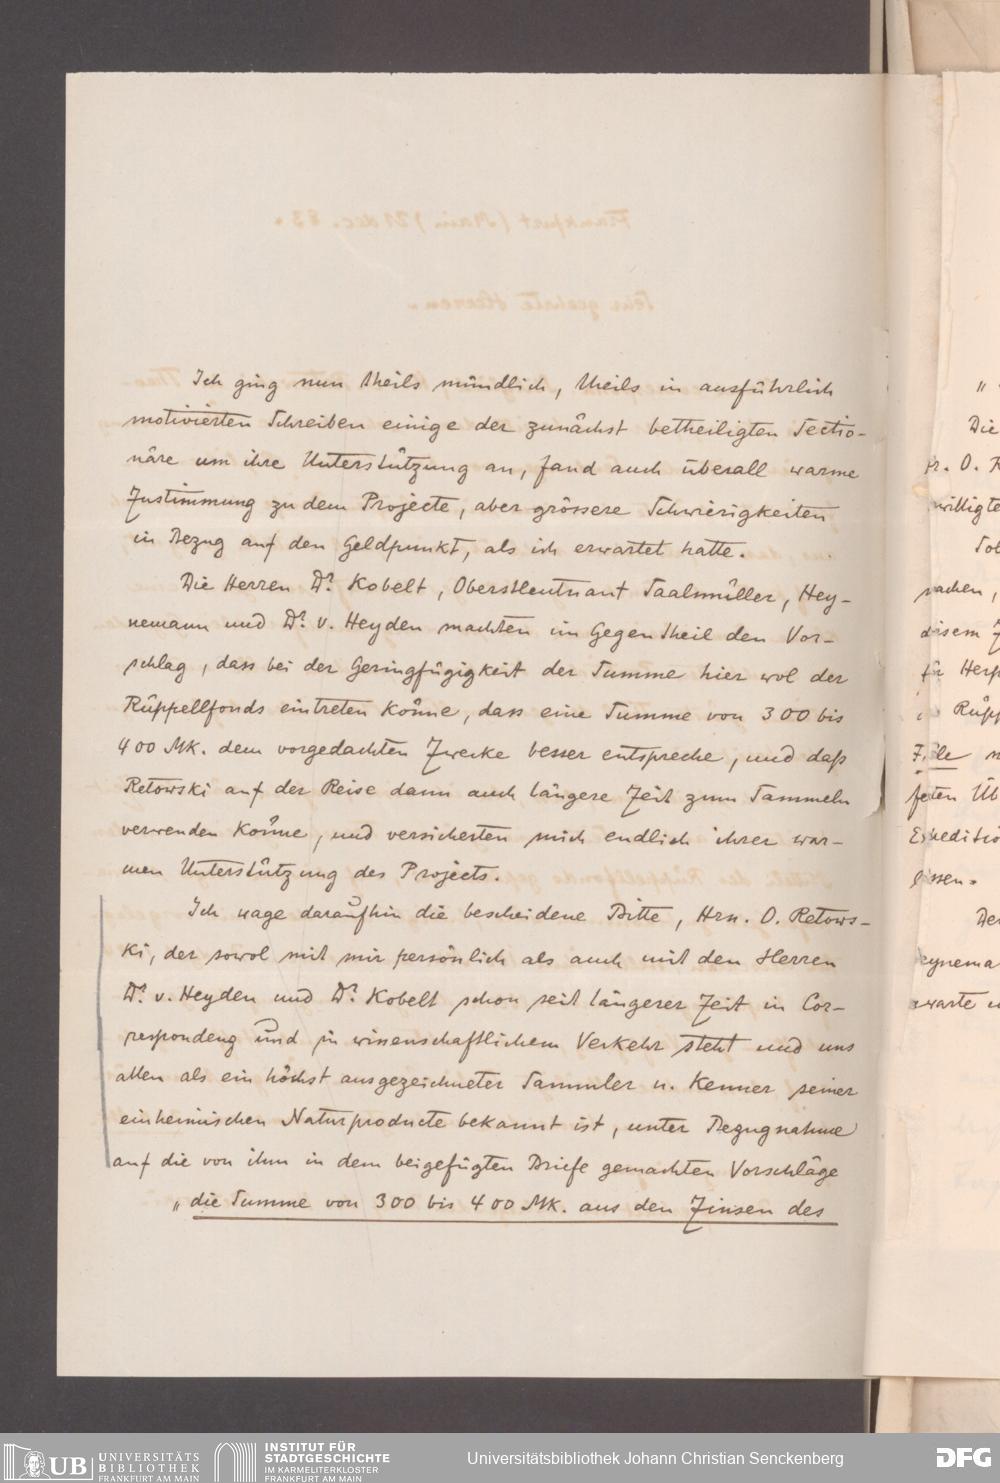 Ich ging nun theils mündlich, theils in ausführlich
motivierten Schreiben einige der zunächst betheiligten Sectio-
näre um ihre Unterstützung an, fand auch überall warme
Zustimmung zu dem Projecte, aber grössere Schwierigkeiten
in Bezug auf den Geldpunkt, als ich erwartet hatte.
Die Herren Dr. Kobelt, Oberstleutnant Saalmüller, Hey-
nemann und Dr. v. Heyden machten im Gegentheil den Vor-
schlag, dass bei der Geringfügigkeit der Summe hier wol der
Rüppellfonds eintreten könne, dass eine Summe von 300 bis
400 Mk. dem vorgedachten Zwecke besser entspreche, und daß
Retowski auf der Reise dann auch längere Zeit zum Sammeln
verwenden könne, und versicherten mich endlich ihrer war-
men Unterstützung des Projects.
Ich wage daraufhin die bescheidene Bitte, Hrn. O. Retows-
ki, der sowol mit mir persönlich als auch mit den Herren
Dr. v. Heyden und Dr. Kobelt schon seit längerer Zeit in Cor-
respondenz und in wissenschaftlichem Verkehr steht und uns
allen als ein höchst ausgezeichneter Sammler u. Kenner seiner
einheimischen Naturproducte bekannt ist, unter Bezugnahme
auf die von ihm in dem beigefügten Briefe gemachten Vorschläge
„die Summe von 300 bis 400 Mk. aus den Zinsen des
"
Die
r. O. R
willigte
Sol
machen,
diesem Z
für Herp
Rüpp
Fälle
festen Üb
Expeditio
lissen.
Der
eynema
warte u
UB UNIVERSITÄTS
BIBLIOTHEK
FRANKFURT AM MAIN
INSTITUT FÜR
STADTGESCHICHTE
IM KARMELITERKLOSTER
FRANKFURT AM MAIN
Universitätsbibliothek Johann Christian Senckenberg
DFG